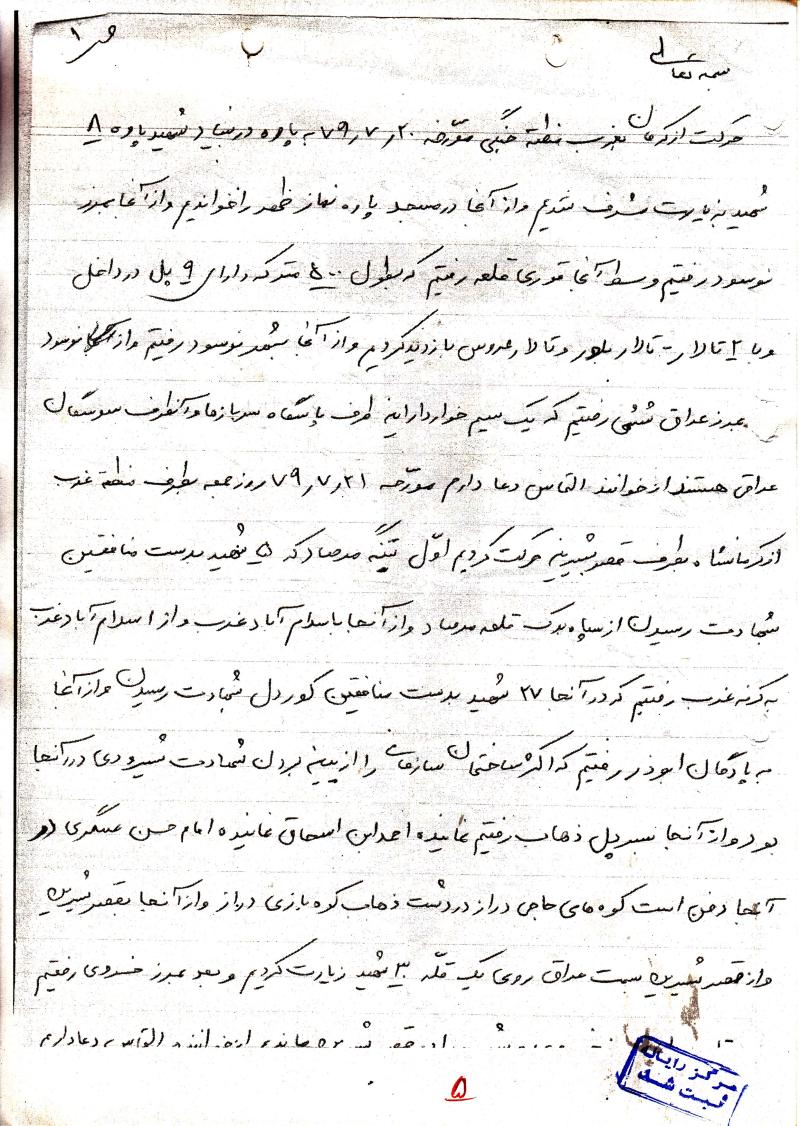 ص ۱
بسمه تعالی
حرکت از کرمان بغرب منطقه جنگی مورّخه ۷۹٫۷٫۲۰ به پاوه در بنیاد شهید پاوه ۸
شهید بزیارت مشرف شدیم و از آنجا در مسجد پاوه نماز ظهر را خواندیم و از آنجا بمرز
نوسود رفتیم وسط آنجا قوری قلعه رفتیم که بطول ۵۰۰ متر که دارای ۹ پل در داخل
و با ۲ تالار تالار بلور و تالار عروس بازدید کردیم و از آنجا بشهر نوسود رفتیم و از نوسود
بمرز عراق رفتیم که یک سیم خواردار این طرف پاسگاه سربازها و آنطرف
عراق هستند از خوانند التماس دعا دارم مورّخه ۷۹٫۷٫۲۱ روز جمعه بطرف منطقه غرب
از کرمانشاه بطرف قصر شیرین حرکت کردیم اوّل تنگه مرصاد که ۵ شهید بدست منافقین
شهادت رسیدن از سپاه قلعه مرصاد و از آنجا باسلام آباد غرب و از اسلام آباد غرب
به کرند غرب رفتیم که در آنجا ۲۷ شهید بدست منافقین کوردل شهادت رسیدن و از آنجا
به پادگان ابوذر رفتیم که اکثر ساختمان سازمانی را از بین بردن شهادت شیرودی در آنجا
بود و از آنجا بسرپل ذهاب رفتیم نماینده احمد ابن اسحاق نماینده امام حسن عسگری در
آنجا دفن است کوه های حاجی دراز در دشت ذهاب کوه بازی دراز و از آنجا بقصر شیرین
و از قصر شیرین سمت عراق روی یک قلّه ۳ شهید زیارت کردیم و بعد بمرز خسروی رفتیم
قصر شیرین ماندیم از خوانند التماس دعا دارم
۵
مرکز رایانه
ثبت شد